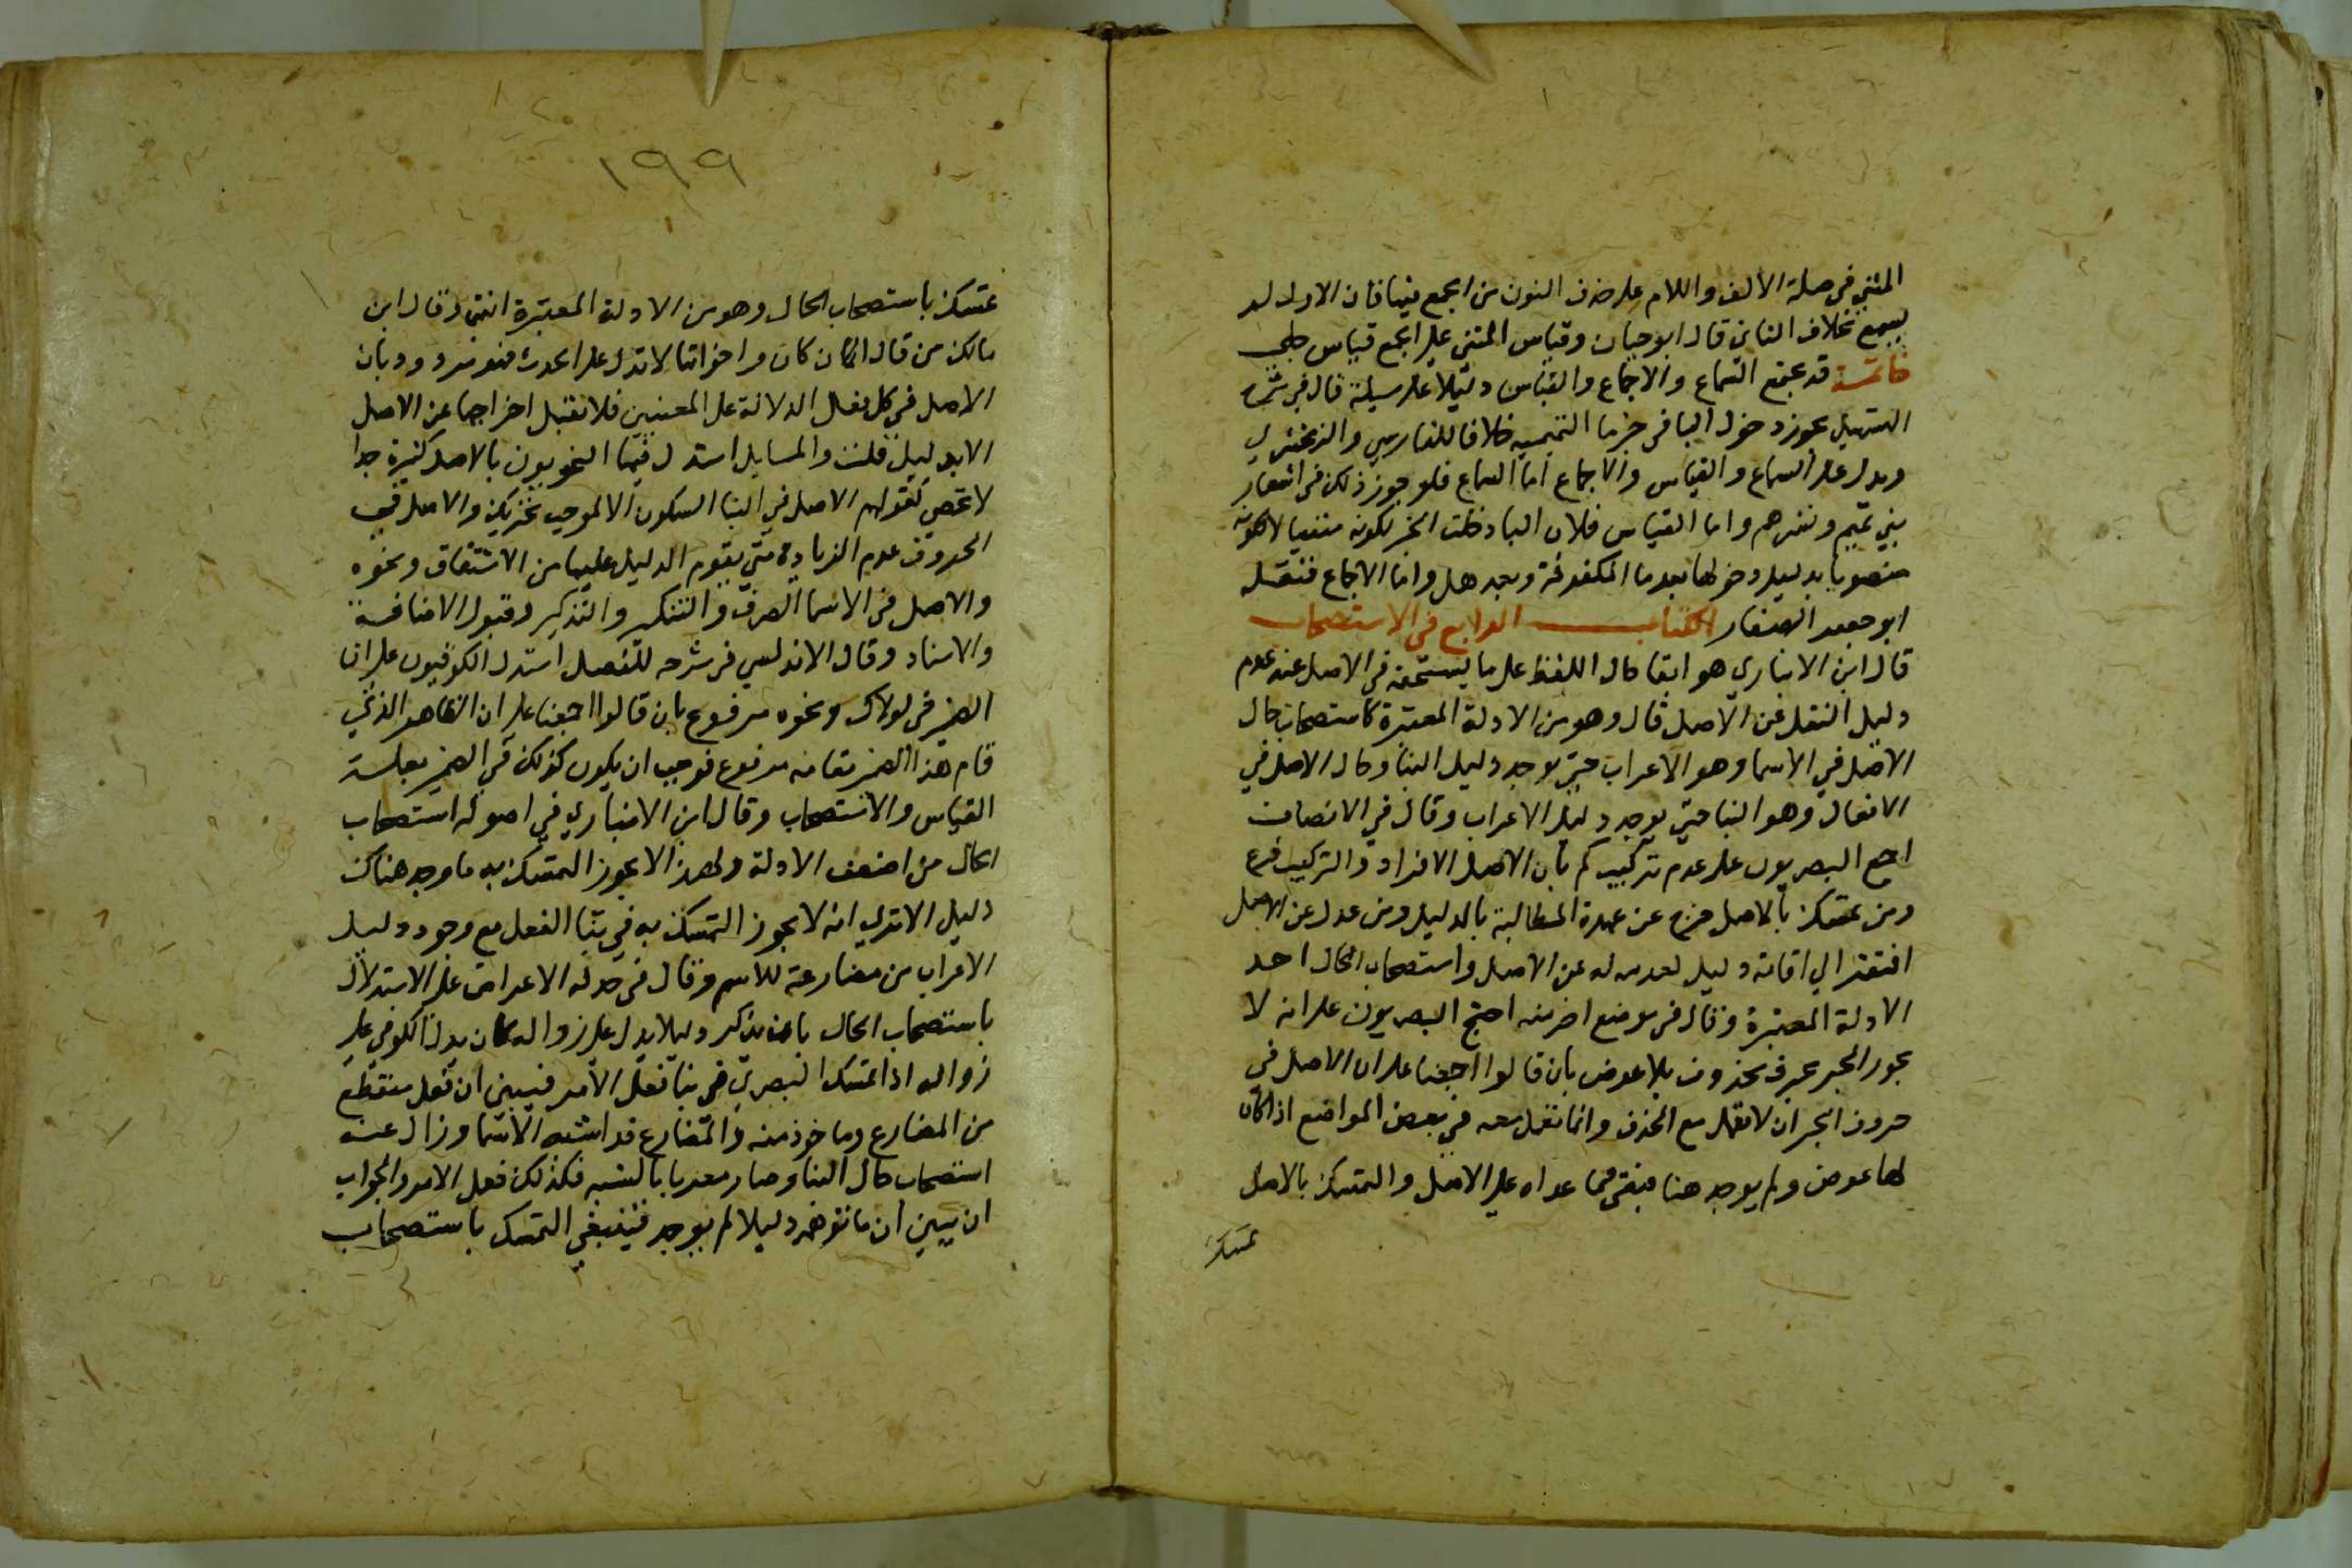 المثني في صلة الألف واللام على حذف النون من الجمع فيها فان الاول لم
يسمع بخلاف الثاني قال ابو حيان وقياس المثني على الجمع قياس جلي
خاتمة قد يجتمع السماع والاجماع والقياس دليلا على مسيلة قال في شرح
التسهيل يجوز دخول البا في خبر ما التميمية خلافا للفارسي والزمخشري
ويدل على السماع والقياس والاجماع اما السماع فلوجود ذلك في اشعار
بني تميم ونثرهم واما القياس فلان البا دخلت الخبر لكونه منفيا لا لكونه
منصوبا بدليل دخولها بعد ما المكفوفة وبعد هل واما الاجماع فنقله
ابو جعفر الصفار الكتاب الرابع في الاستصحاب
قال ابن الانباري هو ابقا حال اللفظ على ما يستحقه في الاصل عند عدم
دليل النقل عن الاصل قال وهو من الادلة المعتبرة كاستصحاب حال
الاصل في الاسما وهو الاعراب حتى يوجد دليل البنا وحال الاصل في
الافعال وهو البنا حتى يوجد دليل الاعراب وقال في الانصاف
احتج البصريون على عدم تركيب كم بأن الاصل الافراد والتركيب فرع
ومن تمسك بالاصل خرج عن عهدة المطالبة بالدليل ومن عدل عن الاصل
افتقر الي اقامة دليل لعدوله عن الاصل واستصحاب الحال احد
الادلة المعتبرة وقال في موضع اخر منه احتج البصريون على انه لا
يجوز الجر بحرف محذوف بلا عوض بان قالوا اجمعنا على ان الاصل في
حروف الجر ان لا تعمل مع الحذف وانما تعمل معه في بعض المواضع اذا كان
لها عوض ولم يوجد هنا فبقي فيما عداه على الاصل والتمسك بالاصل
تمسك
١٩٩
تمسك باستصحاب الحال وهو من الادلة المعتبرة انتهى وقال ابن
مالك من قال ان كان واخواتها لا تدل على الحدث فهو مردود بان
الاصل في كل فعل الدلالة على المعنيين فلا يقبل اخراجها عن الاصل
الا بدليل قلت والمسايل استدل فيها النحويون بالاصل كثيرة جدا
لا تحصى كقولهم الاصل في البنا السكون الا لموجب تحريك والاصل في
الحروف عدم الزيادة حتى يقوم الدليل عليها من الاشتقاق ونحوه
والاصل في الاسما الصرف والتنكير والتذكير وقبول الاضافة
والاسناد وقال الاندلسي في شرحه للمفصل استدل الكوفيون على ان
الضمير في لولاك ونحوه مرفوع بان قالوا اجمعنا على ان الظاهر الذي
قام هذا الضمير مقامه مرفوع فوجب ان يكون كذلك في الضمير بعلة
القياس والاستصحاب وقال ابن الانباري في اصوله استصحاب
الحال من اضعف الادلة ولهذا لا يجوز التمسك به ما وجد هناك
دليل الا تري انه لا يجوز التمسك به في بنا الفعل مع وجود دليل
الاعراب من مضارعة للاسم وقال في جدله الاعتراض على الاستدلال
باستصحاب الحال بان يذكر دليلا يدل على زواله كان يدل الكوفي على
زواله اذا تمسك البصري في بنا فعل الامر فيبين ان فعل مقتطع
من المضارع وماخوذ منه والمضارع قد اشبه الاسما وزال عنه
استصحاب حال البنا وصار معربا بالشبه فكذلك فعل الامر والجواب
ان يبين ان ما توهمه دليلا لم يوجد فينبغي التمسك باستصحاب